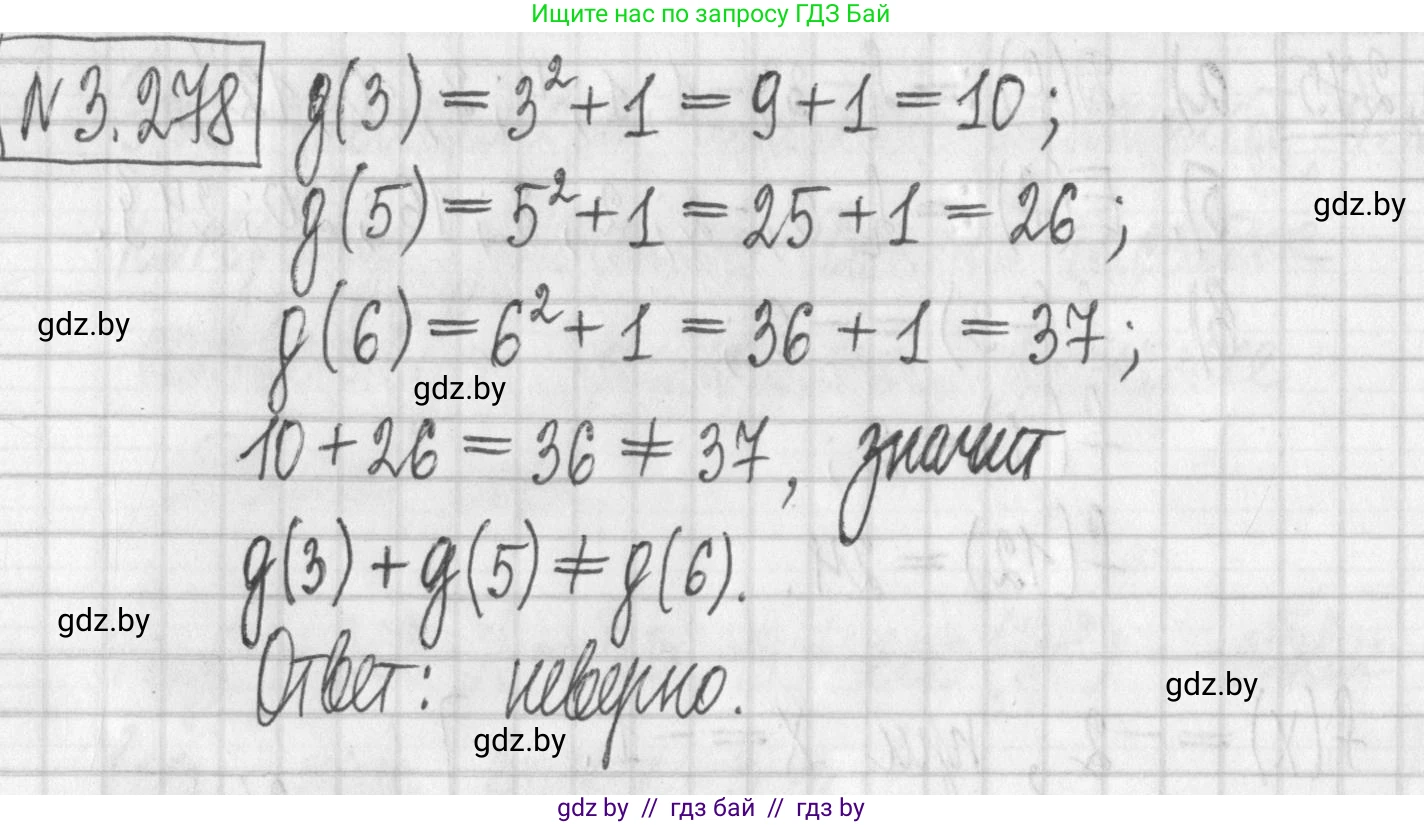 Ищите нас по запросу ГДЗ Бай
N 3.278 g(3) = 3² + 1 = 9 + 1 = 10 ;
g(5) = 5² + 1 = 25 + 1 = 26 ;
gdz.by
g(6) = 6² + 1 = 36 + 1 = 37 ;
gdz.by
gdz.by
10 + 26 = 36 ≠ 37, значит
g(3) + g(5) ≠ g(6).
gdz.by
Ответ: неверно.
gdz.by
gdz.by
gdz by // гдз бай // гдз by